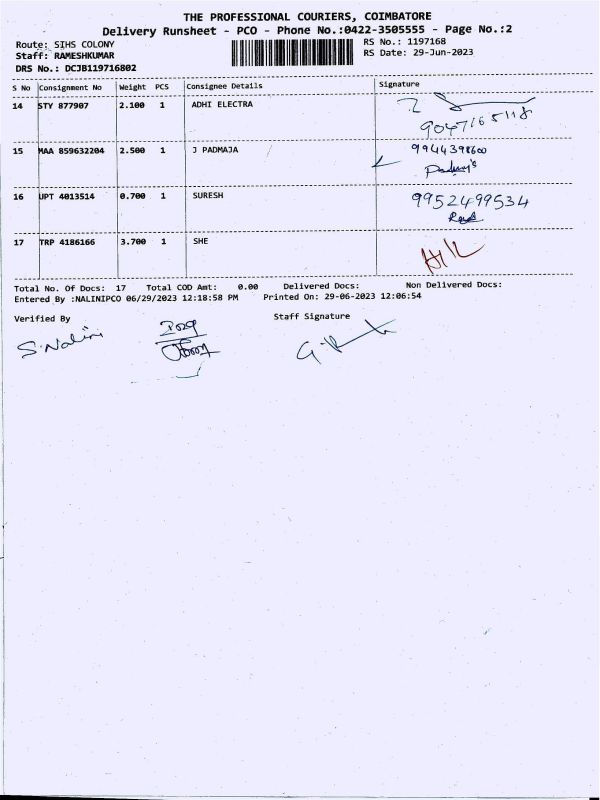 THE PROFESSIONAL COURIERS, COIMBATORE
Delivery Runsheet - PCO - Phone No.:0422-3505555 - Page No.:2
Route: SIHS COLONY RS No.: 1197168
Staff: RAMESHKUMAR RS Date: 29-Jun-2023
DRS No.: DCJB119716802
S No Consignment No Weight PCS Consignee Details Signature
14 STY 877907 2.100 1 ADHI ELECTRA
9047165118
15 MAA 859632204 2.500 1 J PADMAJA 9944398600
16 UPT 4013514 0.700 1 SURESH 9952499534
17 TRP 4186166 3.700 1 SHE
Total No. Of Docs: 17 Total COD Amt: 0.00 Delivered Docs: Non Delivered Docs:
Entered By :NALINIPCO 06/29/2023 12:18:58 PM Printed On: 29-06-2023 12:06:54
Verified By Staff Signature
S.Nalini